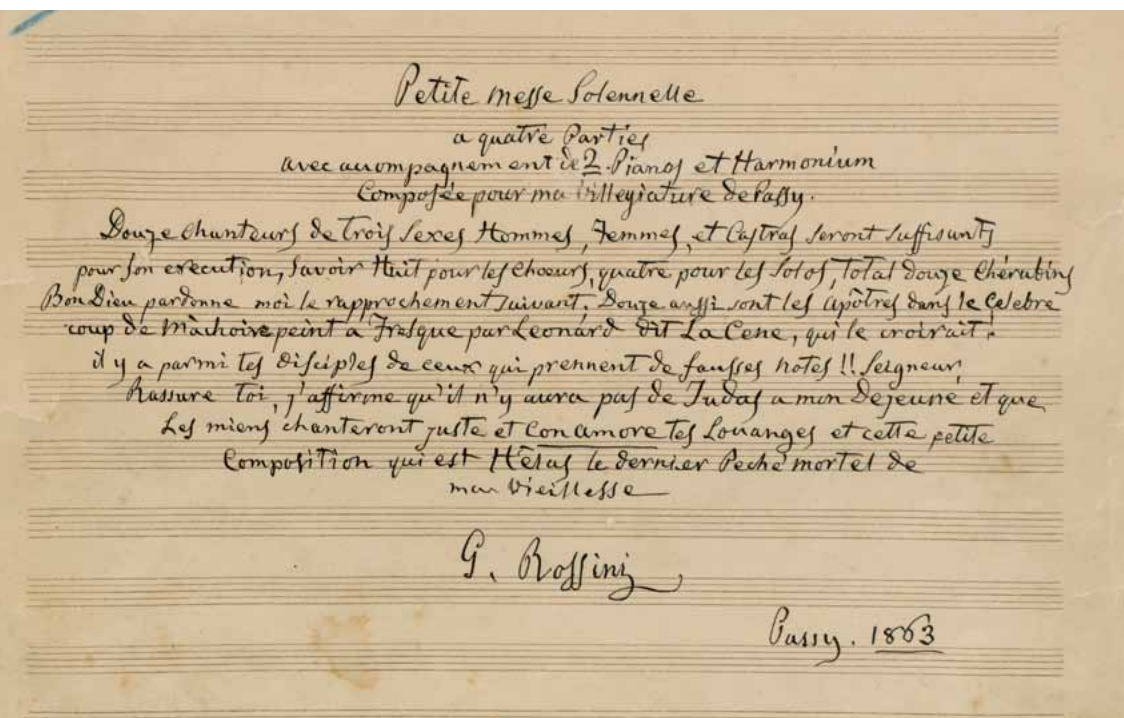 Petite messe Solennelle
a quatre Parties
avec accompagnement de 2 Pianos et Harmonium
Composée pour ma villegiature de Passy.
Douze chanteurs de trois Sexes Hommes, Femmes, et Castras seront suffisants
pour son execution, Savoir Huit pour les Choeurs, quatre pour les Solos, Total douze Chérubins
Bon Dieu pardonne moi le rapprochement suivant, Douze aussi sont les Apôtres dans le Celebre
coup de Mâchoire peint a Fresque par Leonard dit La Cene, qui le croirait.
il y a parmi tes disciples de ceux qui prennent de fausses notes !! Seigneur,
Rassure toi, j'affirme qu'il n'y aura pas de Judas a mon Dejeuné et que
Les miens chanteront juste et Con amore tes Louanges et cette petite
Composition qui est Hélas le dernier Peché mortel de
ma vieillesse
G. Rossini
Passy. 1863